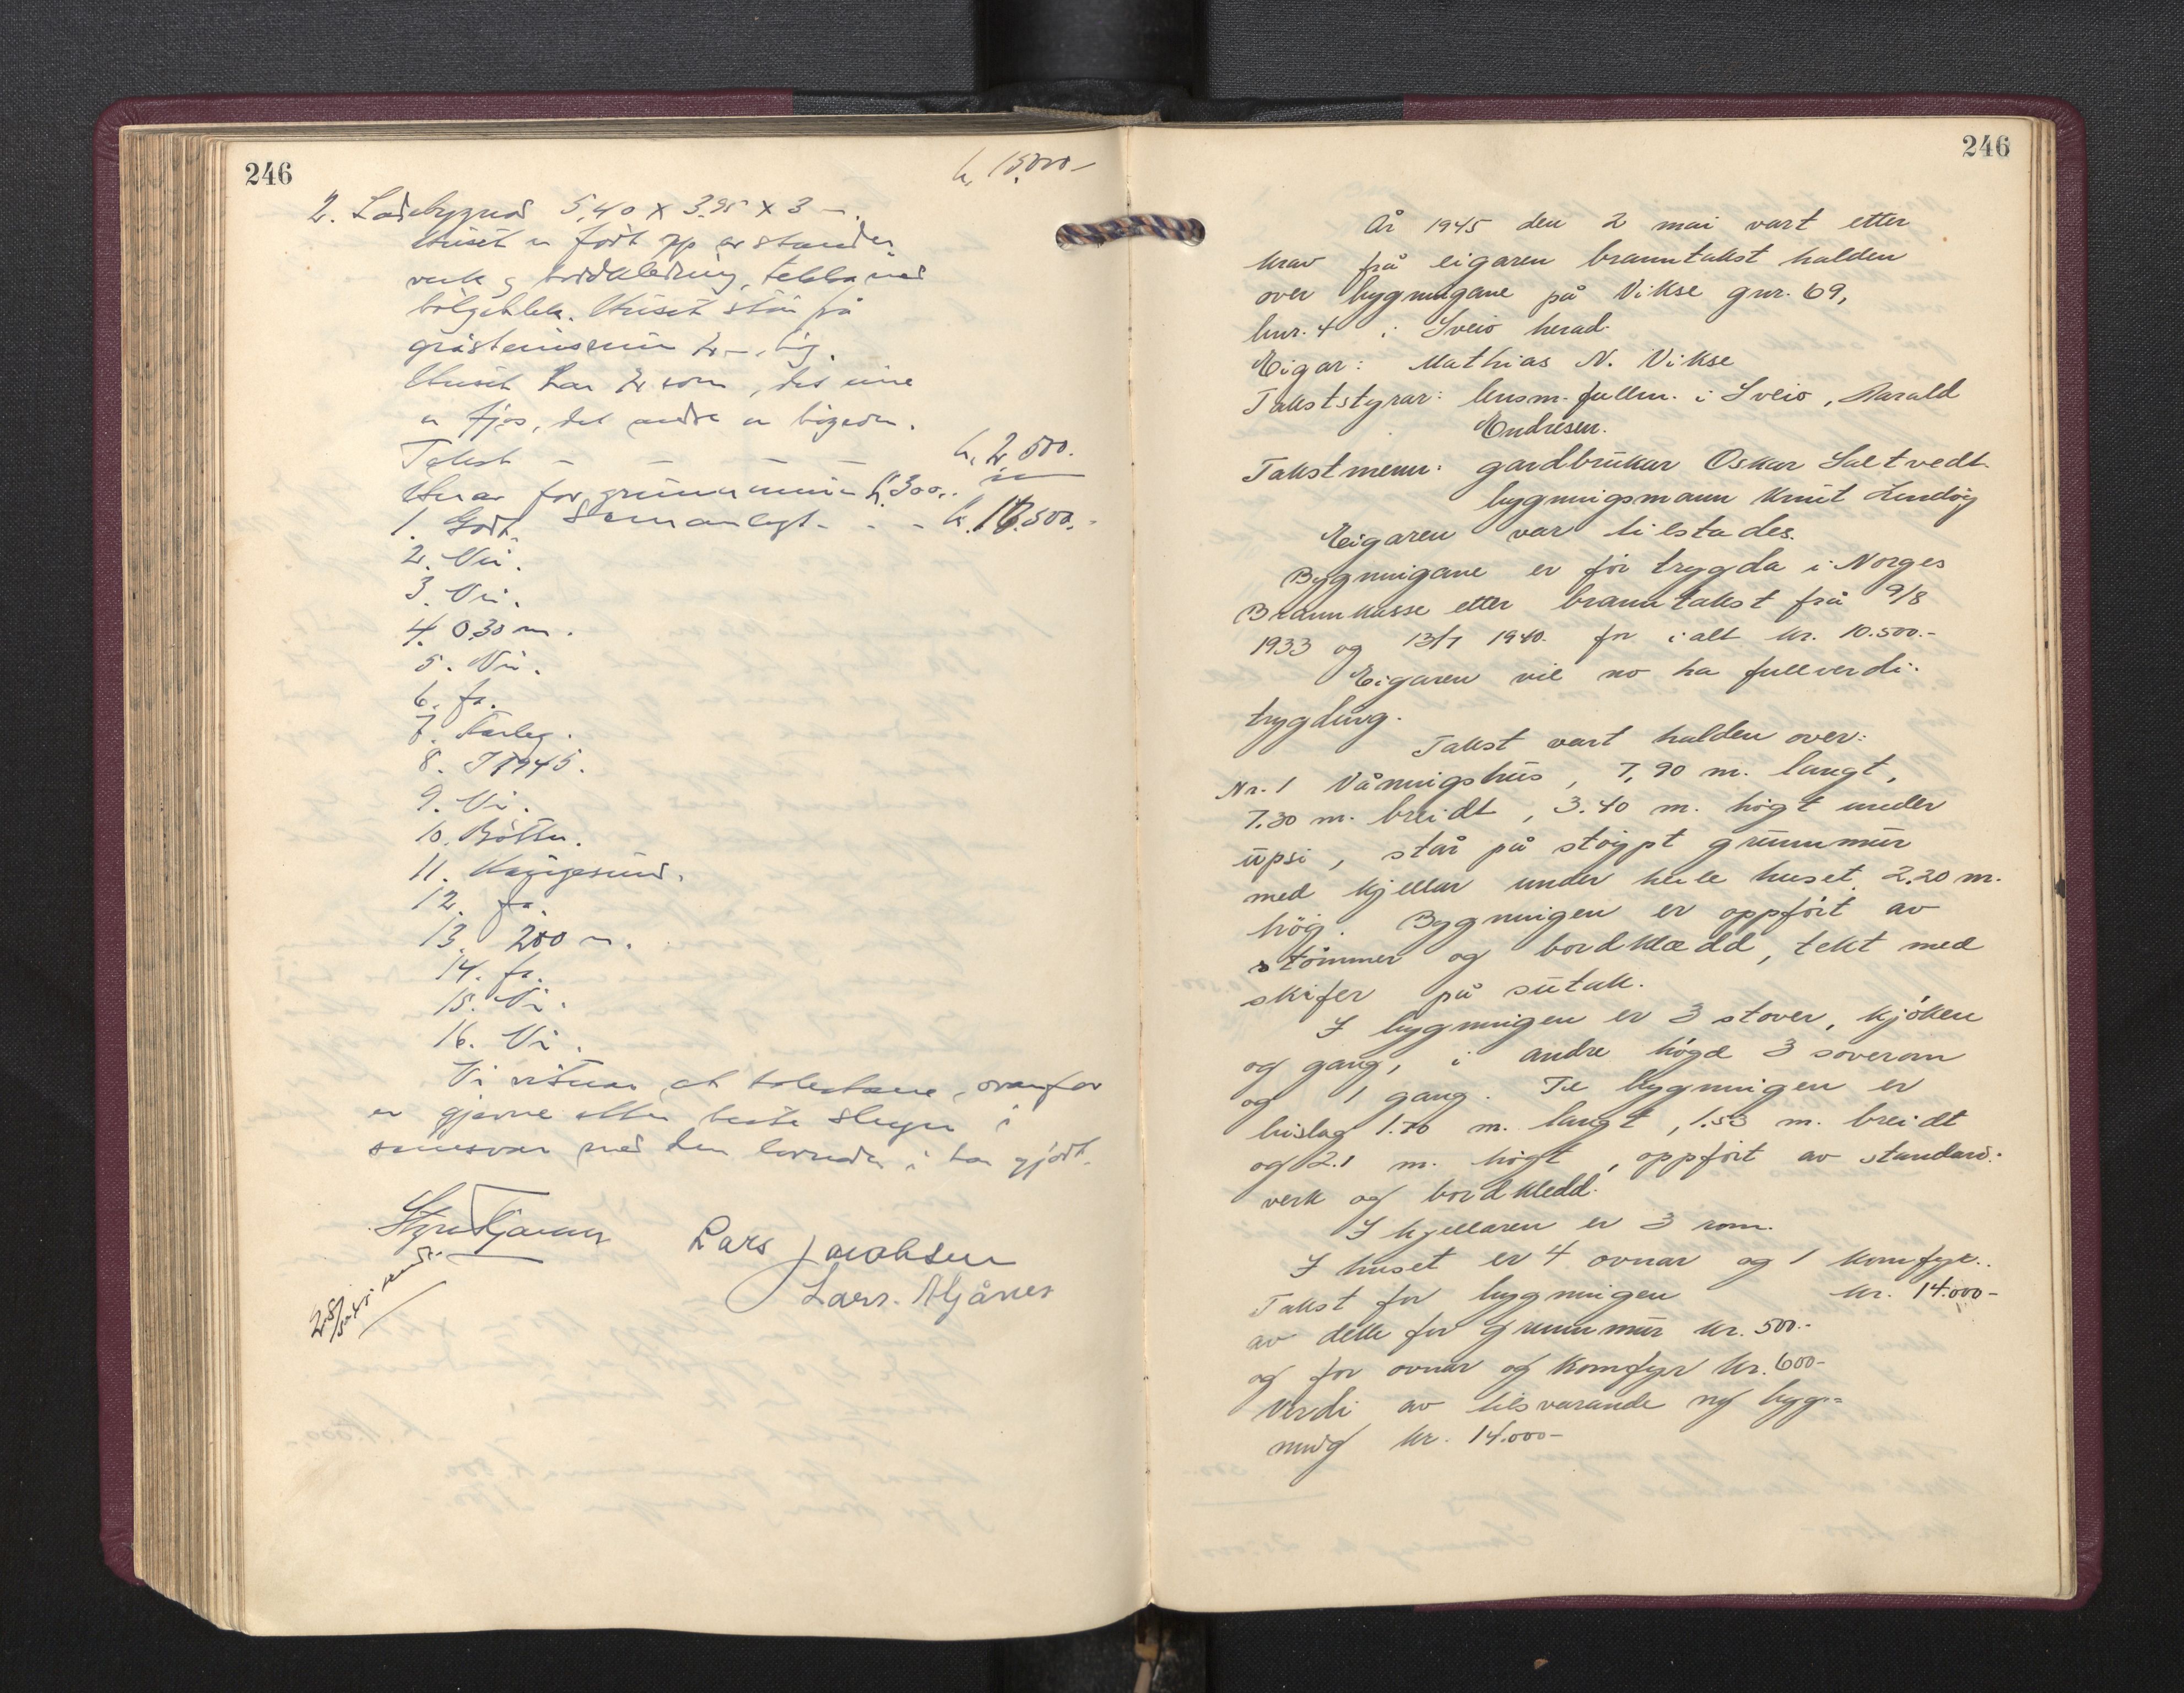 246
kr. 15.000-
2. Lødebygnad 5.40 x 3.95 x 3 m.
Huset er ført opp av stender
verk og bordkledning, tekka med
bølgeblekk. Huset står på
gråsteinsmur 2 m. høg.
Huset har 2 rom, det eine
er fjøs, det andre er
Takst - - - - - kr. 2.500.
Herav for grunnmur kr. 300..
Samanlagt - - - kr. 17.500.-
1. Godt.
2. Nei.
3. Nei.
4. 0.30 m.
5. Nei.
6. Ja.
7. Farleg.
8. I 1945.
9. Nei.
10. Bøtter.
11. Haugesund.
12. Ja.
13. 200 m.
14. Ja.
15. Nei.
16. Nei.
Vi vitnar at takstane ovanfor
er gjevne etter beste skjøn i
samsvar med den lovnaden vi har gjort.
Lars Jacobsen
Lars. Mjånes
246
År 1945 den 2 mai vart etter
krav frå eigaren branntakst halden
over bygningane på Vikse gnr. 69,
bnr. 4 i Sveio herad.
Eigar: Mathias N. Vikse
Takststyrar: lensm. fullm. i Sveio, Harald
Endresen.
Takstmenn: gardbrukar Oskar Saltvedt
bygningsmann Knut Lindøy
Eigaren var tilstades.
Bygningane er før trygda i Norges
Brannkasse etter branntakst frå 9/8
1933 og 13/7 1940. for i alt kr. 10.500.-
Eigaren vil no ha fullverdi-
trygding.
Takst vart halden over:
Nr. 1 Våningshus, 7,90 m. langt,
7.30 m. breidt, 3.40 m. høgt under
upsi, står på støypt grunnmur
med kjellar under heile huset 2,20 m.
høg. Bygningen er oppført av
tømmer og bordklædd, tekt med
skifer på sutak.
I bygningen er 3 stover, kjøken
og gang, i andre høgd 3 soverom
og 1 gang. Til bygningen er
bislag 1.70 m. langt, 1.53 m. breidt
og 2.1 m. høgt, oppført av standard-
verk og bordkledd.
I kjellaren er 3 rom.
I huset er 4 ovnar og 1 komfyr.
Takst for bygningen kr. 14.000-
av dette for grunnmur kr. 500.-
og for ovnar og komfyr kr. 600-
Verdi av tilsvarande ny byg=
ning kr. 14.000-